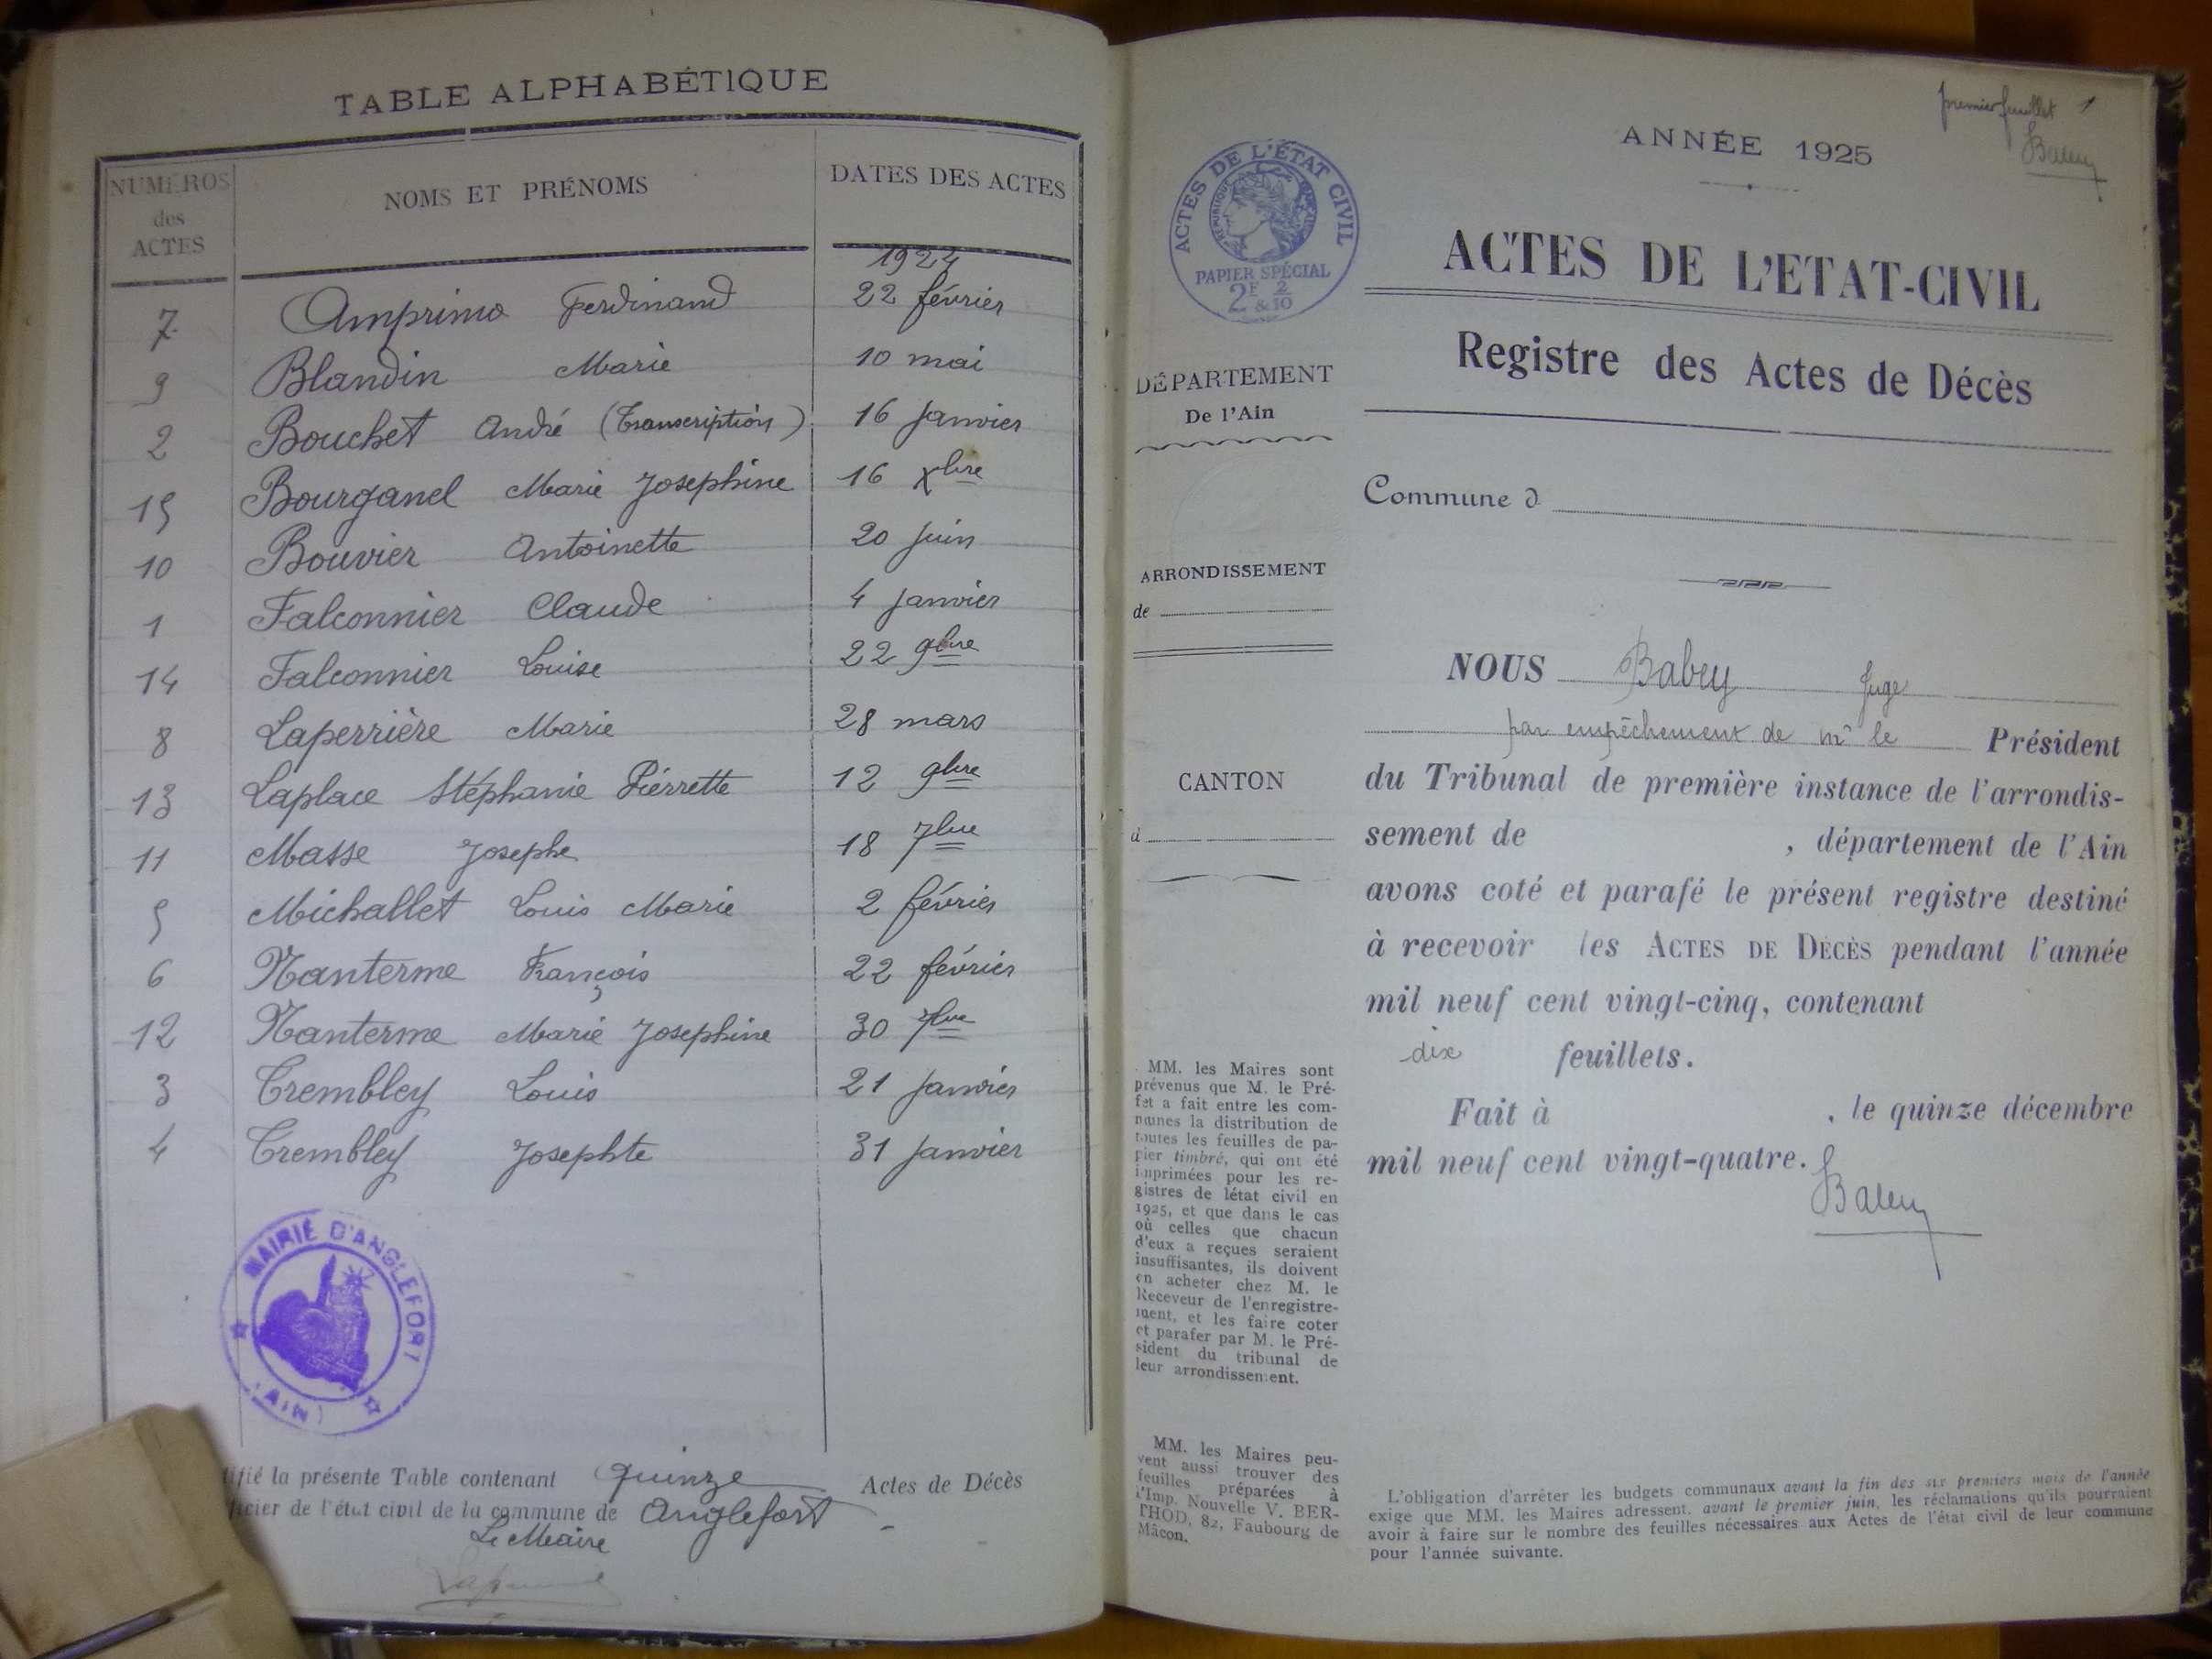 TABLE ALPHABÉTIQUE
NUMÉROS des ACTES
NOMS ET PRÉNOMS
DATES DES ACTES
1924
7 Amprimo Ferdinand 22 février
9 Blandin Marie 10 mai
2 Bouchet André (Transcription) 16 janvier
15 Bourganel Marie Josephine 16 Xbre
10 Bouvier Antoinette 20 juin
1 Falconnier Claude 4 janvier
14 Falconnier Louise 22 9bre
8 Laperrière Marie 28 mars
13 Laplace Stéphanie Pierrette 12 9bre
11 Masse Josephe 18 7bre
5 Michallet Louis Marie 2 février
6 Nanterme François 22 février
12 Nanterme Marie Josephine 30 7bre
3 Trembley Louis 21 janvier
4 Trembley Josephte 31 janvier
MAIRIE D'ANGLEFORT
(AIN)
tifié la présente Table contenant Quinze Actes de Décès
ficier de l'état civil de la commune de Anglefort
Le Maire
premier feuillet 1
Babey
ANNÉE 1925
ACTES DE L'ÉTAT CIVIL
RÉPUBLIQUE FRANÇAISE
PAPIER SPÉCIAL
2F & 2/10
ACTES DE L'ETAT-CIVIL
Registre des Actes de Décès
DÉPARTEMENT
De l'Ain
Commune d
ARRONDISSEMENT
de
CANTON
d
NOUS Babey Juge
par empêchement de Mr le Président
du Tribunal de première instance de l'arrondis-
sement de , département de l'Ain
avons coté et parafé le présent registre destiné
à recevoir les ACTES DE DÉCÈS pendant l'année
mil neuf cent vingt-cinq, contenant
dix feuillets.
Fait à , le quinze décembre
mil neuf cent vingt-quatre.
Babey
MM. les Maires sont
prévenus que M. le Pré-
fet a fait entre les com-
munes la distribution de
toutes les feuilles de pa-
pier timbré, qui ont été
imprimées pour les re-
gistres de létat civil en
1925, et que dans le cas
où celles que chacun
d'eux a reçues seraient
insuffisantes, ils doivent
en acheter chez M. le
Receveur de l'enregistre-
ment, et les faire coter
et parafer par M. le Pré-
sident du tribunal de
leur arrondissement.
MM. les Maires peu-
vent aussi trouver des
feuilles préparées à
l'Imp. Nouvelle V. BER-
THOD, 82, Faubourg de
Mâcon.
L'obligation d'arrêter les budgets communaux avant la fin des six premiers mois de l'année
exige que MM. les Maires adressent, avant le premier juin, les réclamations qu'ils pourraient
avoir à faire sur le nombre des feuilles nécessaires aux Actes de l'état civil de leur commune
pour l'année suivante.